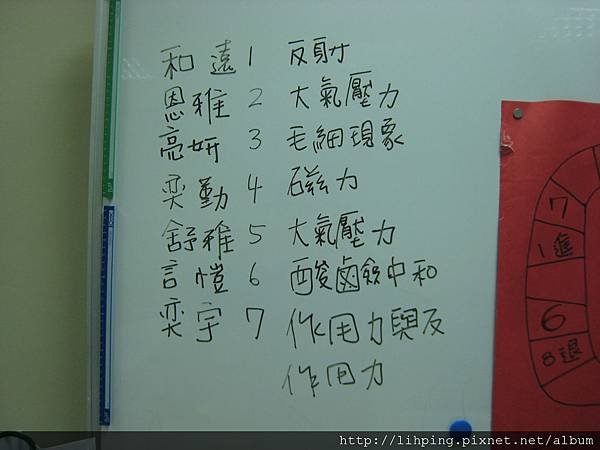 和遠 1 反射
恩雅 2 大氣壓力
亮妍 3 毛細現象
奕勤 4 磁力
舒雅 5 大氣壓力
言愷 6 酸鹼中和
奕宇 7 作用力與反
作用力
7
1進
6
8退
http://lihping.pixnet.net/album